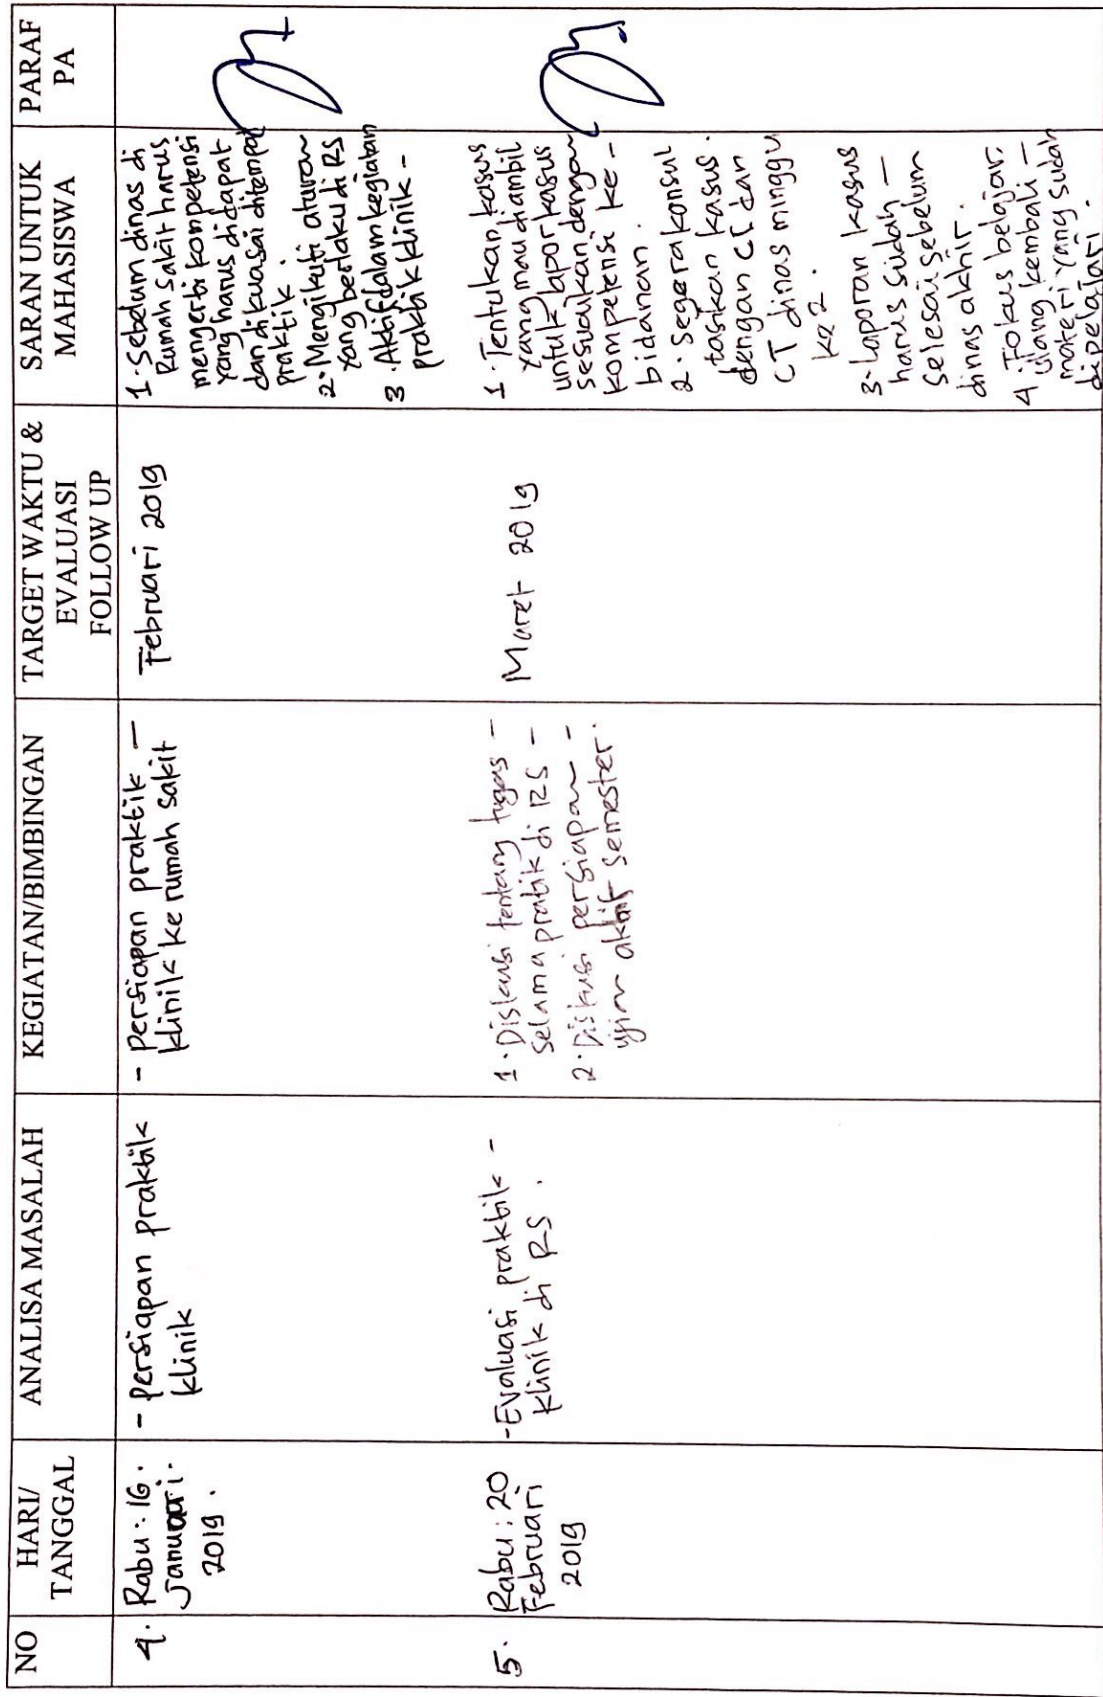 NO
HARI/
TANGGAL
ANALISA MASALAH
KEGIATAN/BIMBINGAN
TARGET WAKTU &
EVALUASI
FOLLOW UP
SARAN UNTUK
MAHASISWA
PARAF
PA
4.
Rabu : 16.
Januari.
2019.
- persiapan praktik
klinik
- persiapan praktik -
klinik ke rumah sakit
Februari 2019
1. Sebelum dinas di
Rumah sakit harus
mengerti kompetensi
yang harus didapat
dan dikuasai ditempat
praktik.
2. Mengikuti aturan
yang berlaku di RS
3. Aktif dalam kegiatan
praktik klinik -
5.
Rabu : 20
Februari
2019
- Evaluasi praktik -
klinik di RS.
1. Diskusi tentang tugas -
selama pratik di RS -
2. Diskusi persiapan -
ujian aktif semester.
Maret 2019
1. Tentukan kasus
yang mau diambil
untuk lapor kasus
sesuaikan dengan
kompetensi ke -
bidanan.
2. Segera konsul
tasikan kasus.
dengan CI dan
CT dinas minggu
ke 2.
3. Laporan kasus
harus sudah -
selesai sebelum
dinas akhir.
4. Fokus belajar,
ulang kembali -
materi yang sudah
dipelajari.